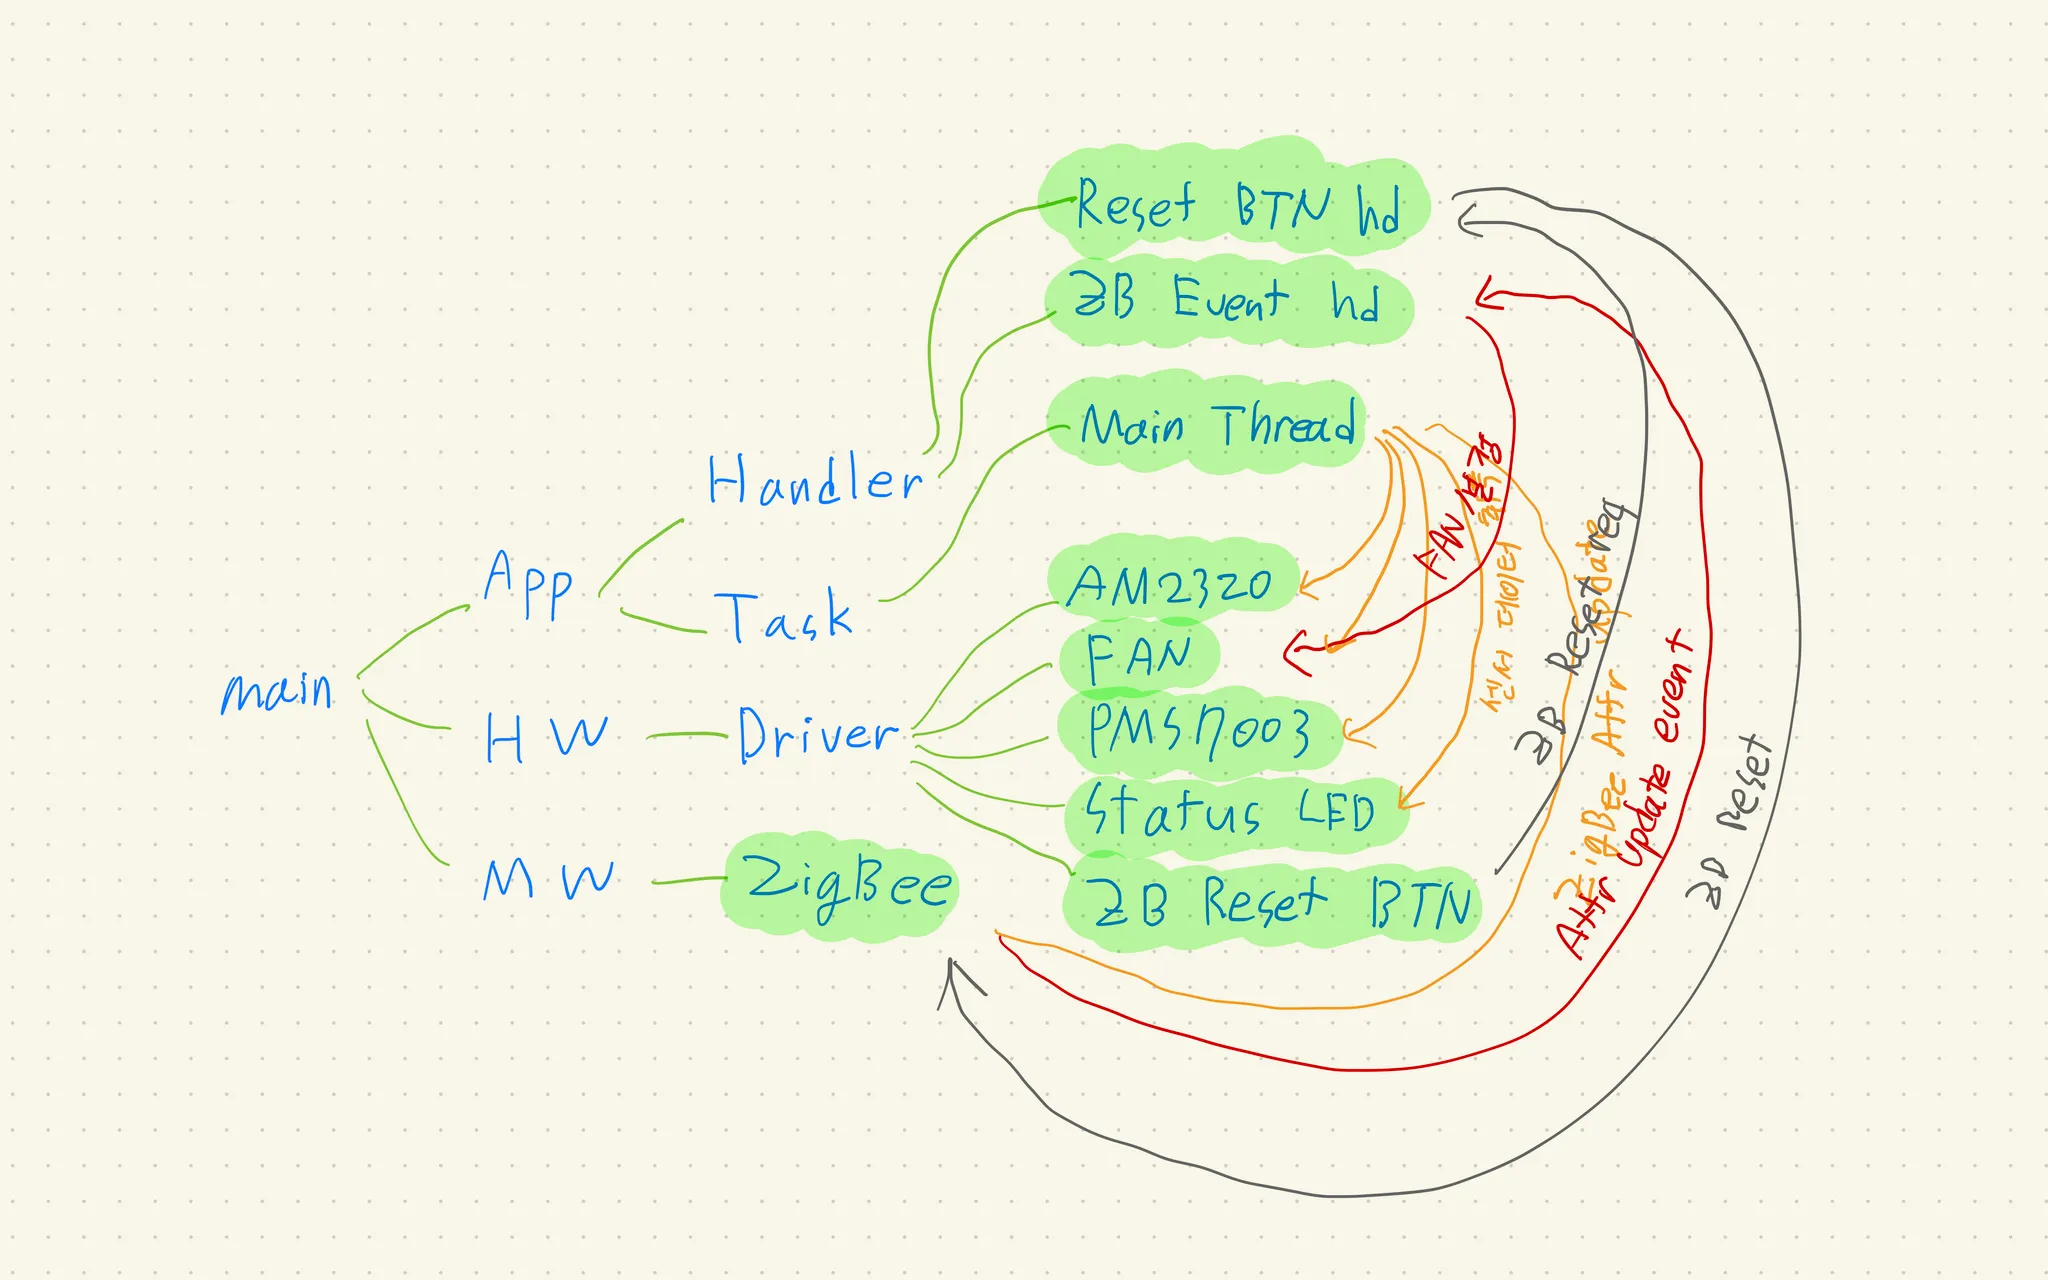 Reset BTN hd
ZB Event hd
Main Thread
Handler
App
Task
AM2320
FAN
main
HW
Driver
PMS7003
Status LED
MW
ZigBee
ZB Reset BTN
FAN 설정
센서 데이터 획득
ZB Reset req
ZigBee Attr update
Attr update event
ZB reset